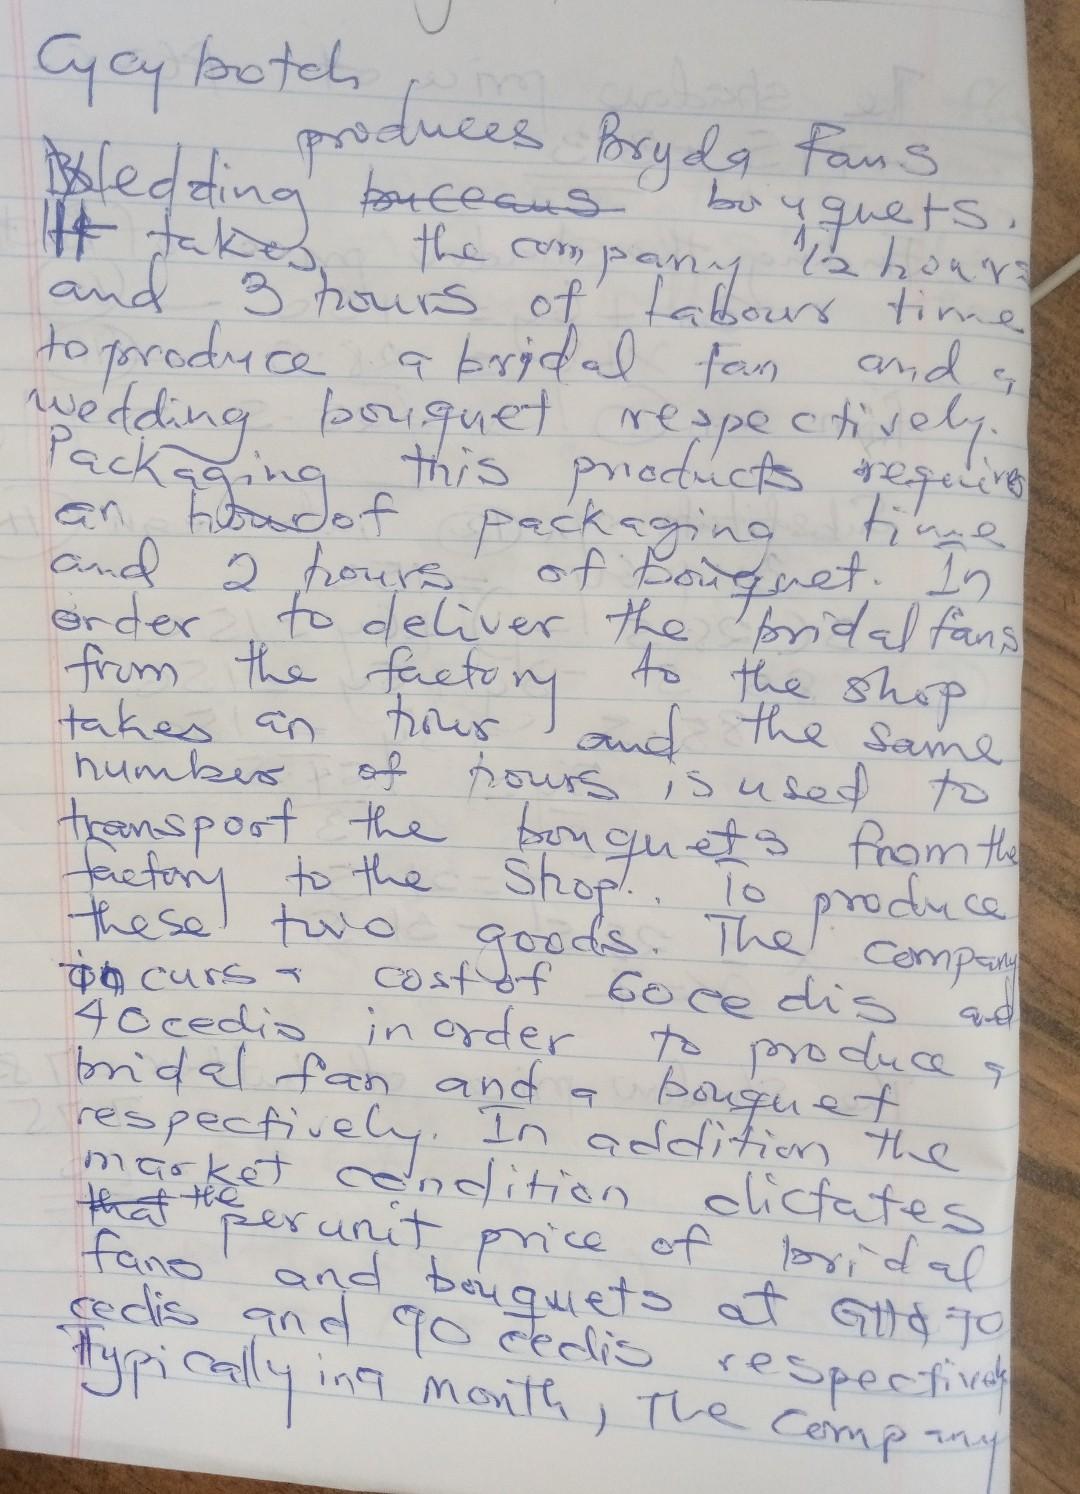 Cycybotch
produces Bryda Fans
Wedding buceaus bouquets.
It takes the company 1/2 hours
and 3 hours of labour time
to produce a bridal fan and a
wedding bouquet respectively.
Packaging this products requires
an hour of packaging time
and 2 hours of bouquet. In
order to deliver the bridal fans
from the factory to the shop
takes an hour and the same
number of hours is used to
transport the bouquets from the
factory to the shop. To produce
these two goods. The company
incurs a cost of 60 cedis and
40 cedis in order to produce a
bridal fan and a bouquet
respectively. In addition the
market condition dictates
that the per unit price of bridal
fans and bouquets at GH¢ 70
cedis and 90 cedis respectively
Typically in a month, The company